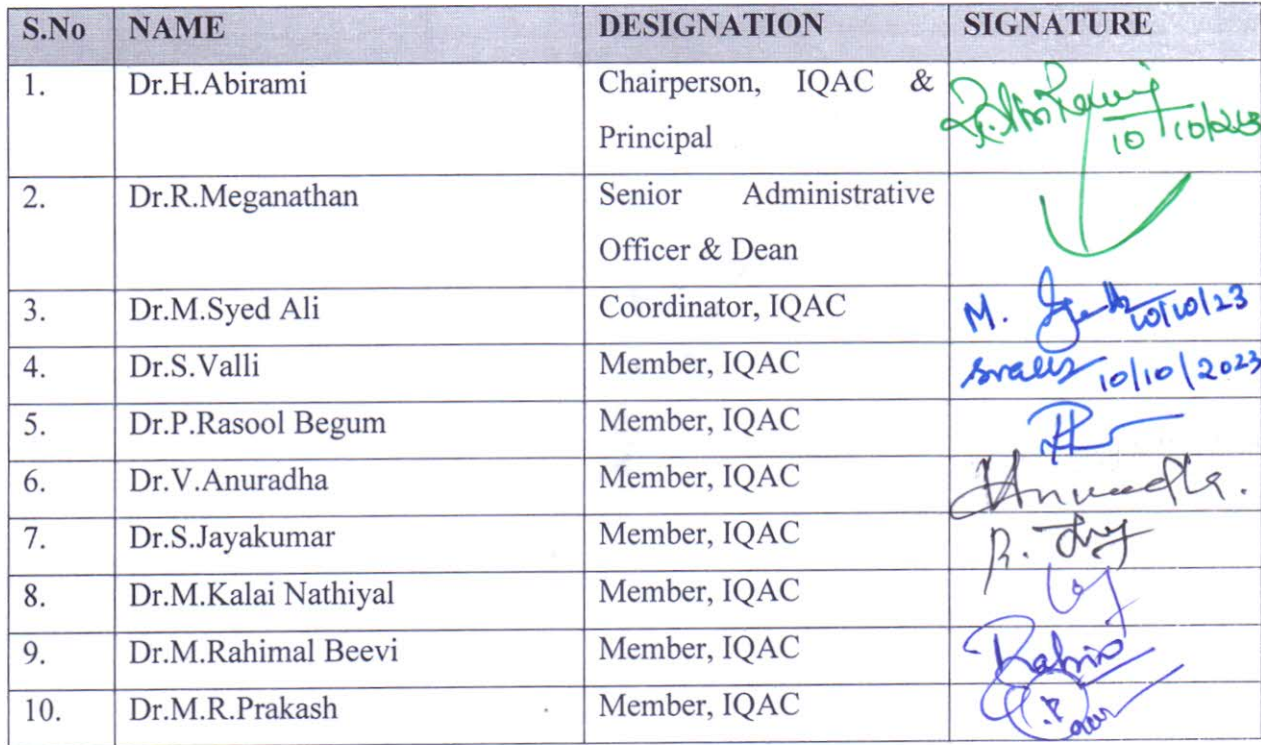 S.No NAME DESIGNATION SIGNATURE
1. Dr.H.Abirami Chairperson, IQAC &
Principal
10/10/2023
2. Dr.R.Meganathan Senior Administrative
Officer & Dean
3. Dr.M.Syed Ali Coordinator, IQAC M. 10/10/23
4. Dr.S.Valli Member, IQAC SValli 10/10/2023
5. Dr.P.Rasool Begum Member, IQAC
6. Dr.V.Anuradha Member, IQAC
7. Dr.S.Jayakumar Member, IQAC
8. Dr.M.Kalai Nathiyal Member, IQAC
9. Dr.M.Rahimal Beevi Member, IQAC
10. Dr.M.R.Prakash Member, IQAC